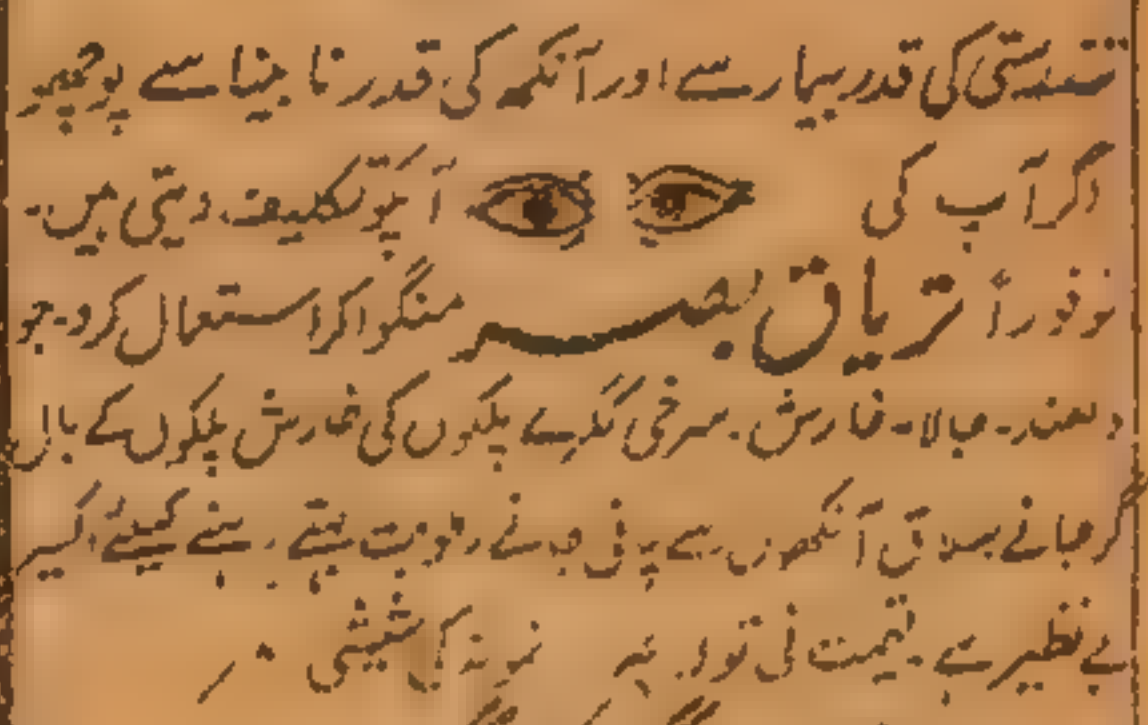 تندرستی کی قدر بیمار سے اور آنکھ کی قدر نابینا سے پوچھیر
اگر آپ کی آپکو تکلیف دیتی ہیں۔
تو فوراً تریاق بصر منگوا کر استعمال کرو۔ جو
دھند۔ جالا۔ خارش۔ سرخی ککرے پلکوں کی خارش پلکوں کے بال
گر جانے آنکھوں سے پانی جانے رطوبت بہتے رہنے کیلئے اکسیر
بے نظیر ہے۔ قیمت فی تولہ نمونہ کی شیشی